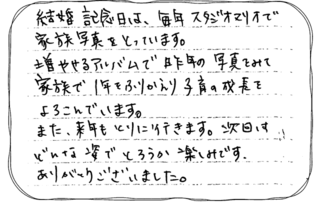 結婚記念日は、毎年スタジオマリオで
家族写真をとっています。
増やせるアルバムで昨年の写真をみて
家族で1年をふりかえり子育の成長を
よろこんでいます。
また、来年もとりに行きます。次回は
どんな姿でとろうか楽しみです。
ありがとうございました。